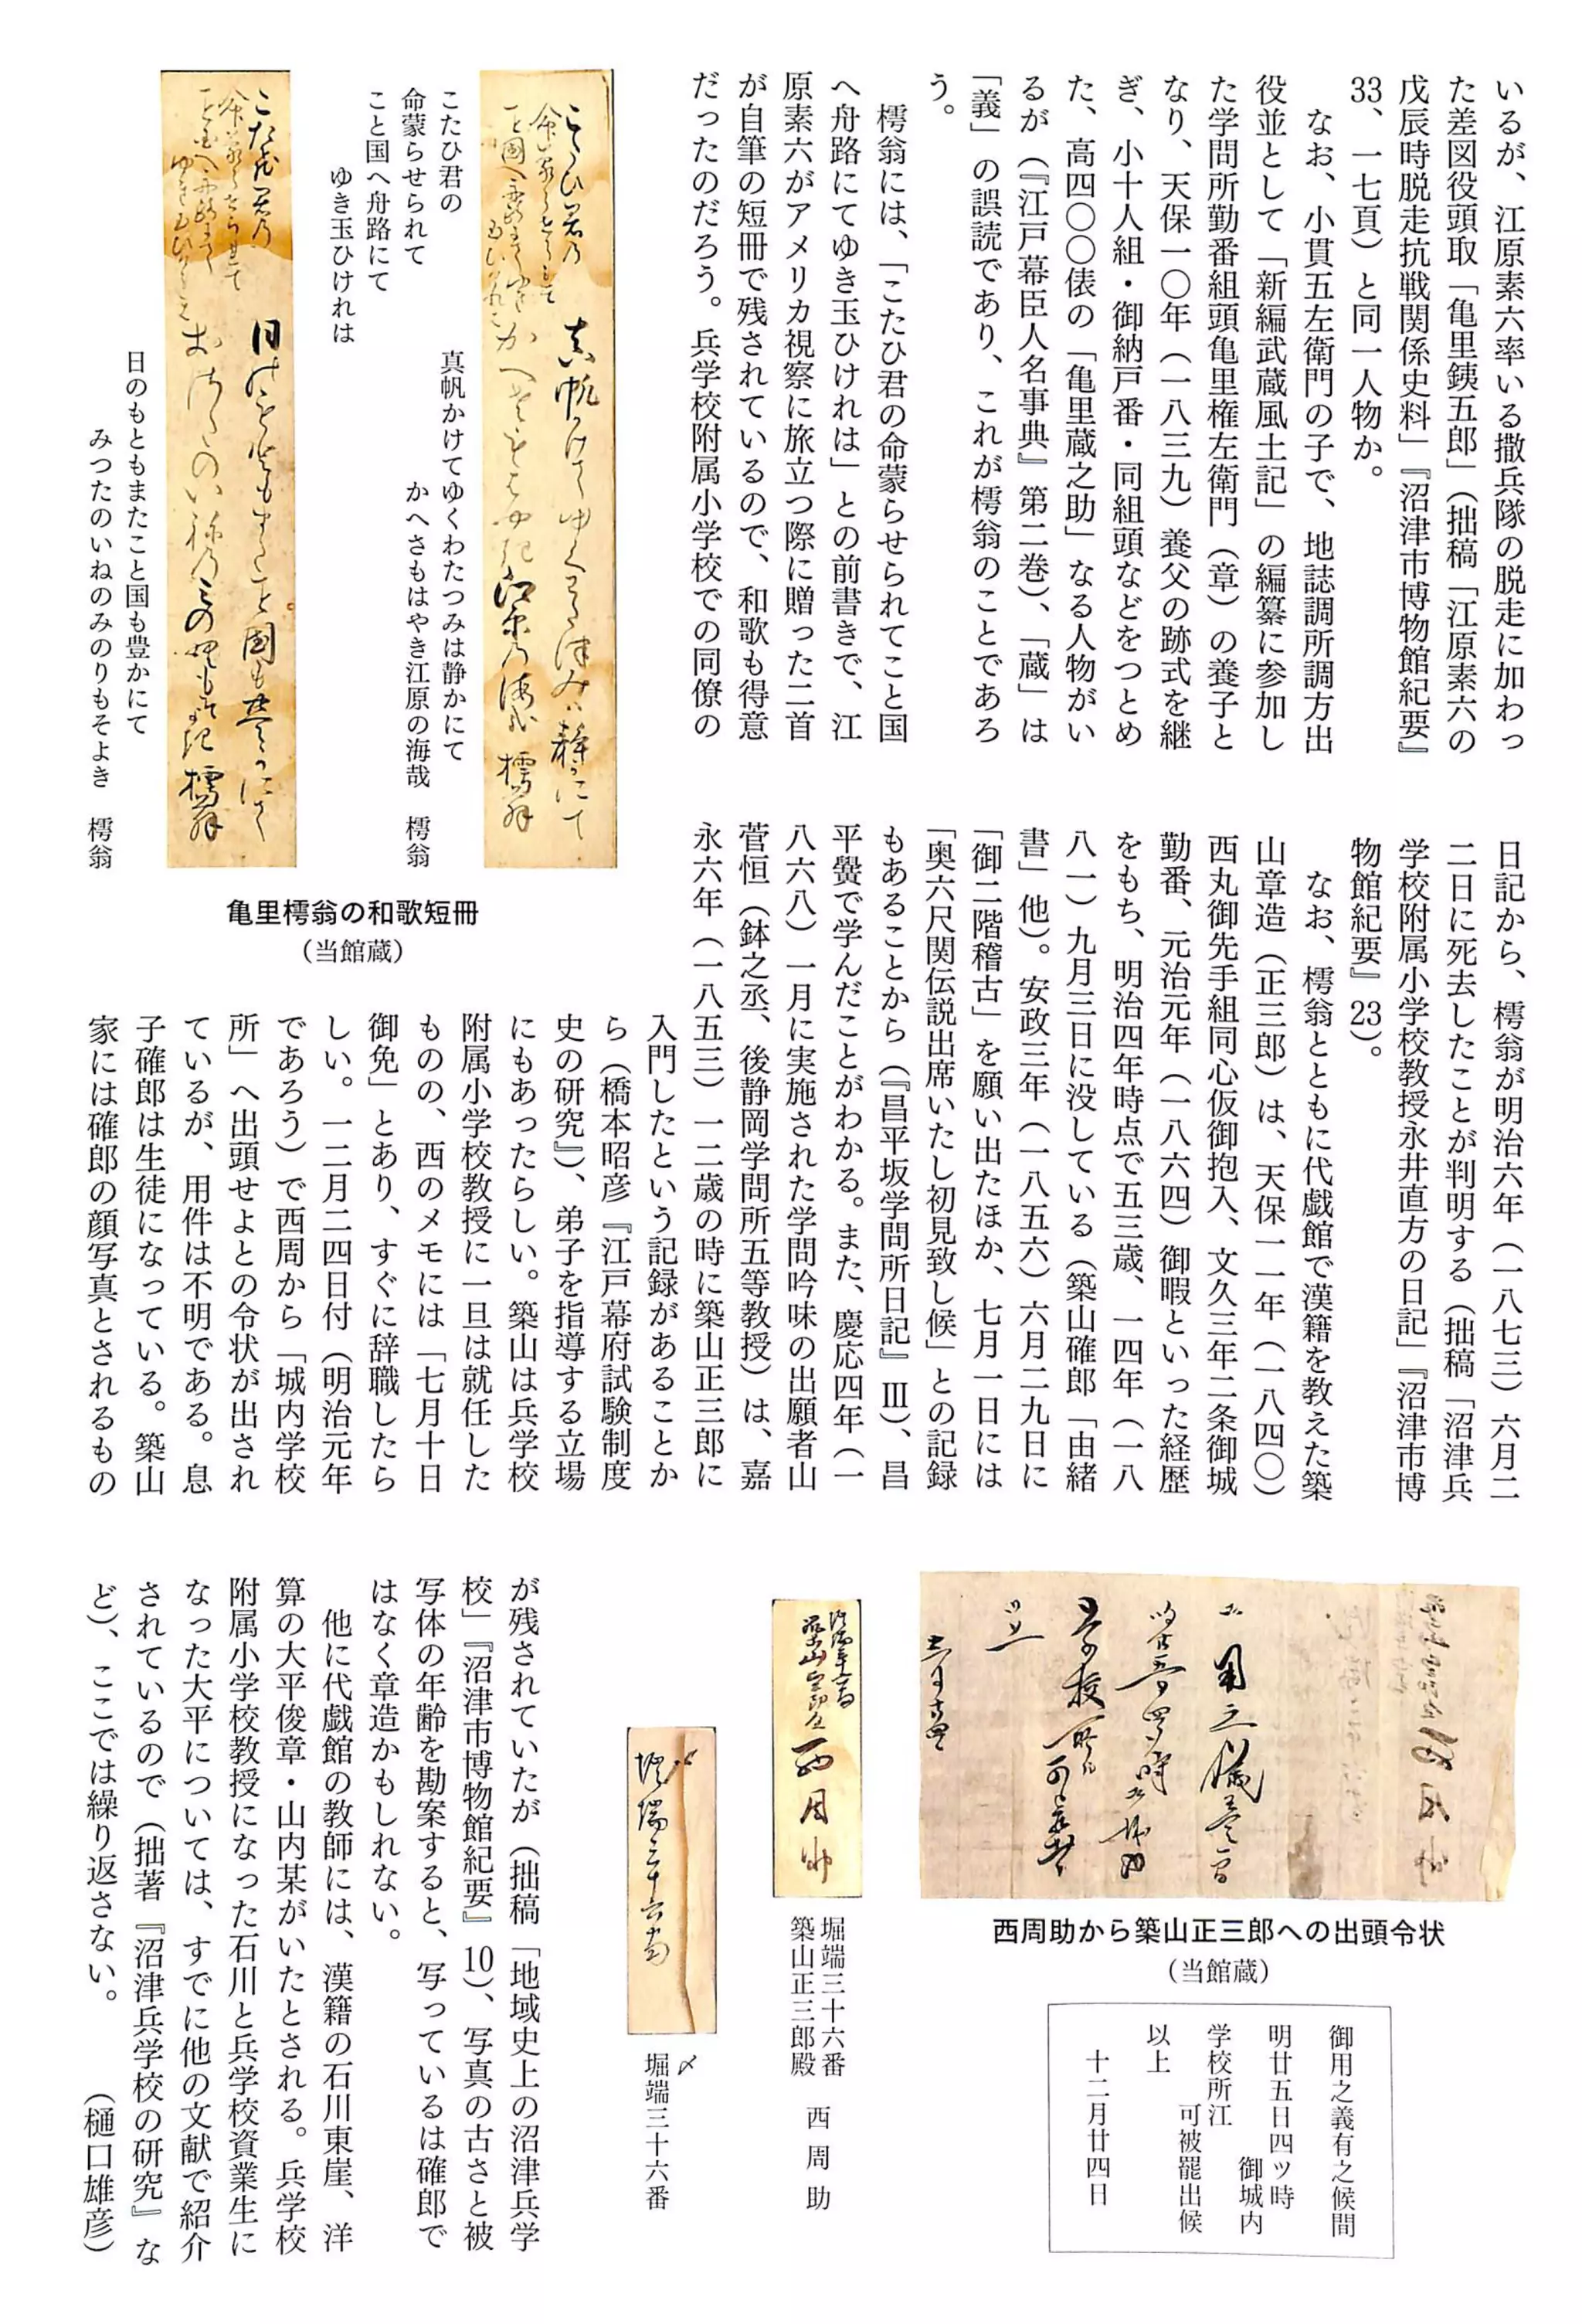 いるが、江原素六率いる撒兵隊の脱走に加わっ
た差図役頭取「亀里銕五郎」（拙稿「江原素六の
戊辰時脱走抗戦関係史料」『沼津市博物館紀要』
33、一七頁）と同一人物か。
なお、小貫五左衛門の子で、地誌調所調方出
役並として「新編武蔵風土記」の編纂に参加し
た学問所勤番組頭亀里権左衛門（章）の養子と
なり、天保一〇年（一八三九）養父の跡式を継
ぎ、小十人組・御納戸番・同組頭などをつとめ
た、高四〇〇俵の「亀里蔵之助」なる人物がい
るが（『江戸幕臣人名事典』第二巻）、「蔵」は
「義」の誤読であり、これが樗翁のことであろ
う。
樗翁には、「こたひ君の命蒙らせられてこと国
へ舟路にてゆき玉ひけれは」との前書きで、江
原素六がアメリカ視察に旅立つ際に贈った二首
が自筆の短冊で残されているので、和歌も得意
だったのだろう。兵学校附属小学校での同僚の
こたひ君の
命蒙らせられて
こと国へ舟路にて
ゆき玉ひけれは
真帆かけてゆくわたつみは静かにて
かへさもはやき江原の海哉　樗翁
日のもともまたこと国も豊かにて
みつたのいねのみのりもそよき　樗翁
亀里樗翁の和歌短冊
（当館蔵）
日記から、樗翁が明治六年（一八七三）六月二
二日に死去したことが判明する（拙稿「沼津兵
学校附属小学校教授永井直方の日記」『沼津市博
物館紀要』23）。
なお、樗翁とともに代戯館で漢籍を教えた築
山章造（正三郎）は、天保一一年（一八四〇）
西丸御先手組同心仮御抱入、文久三年二条御城
勤番、元治元年（一八六四）御暇といった経歴
をもち、明治四年時点で五三歳、一四年（一八
八一）九月三日に没している（築山確郎「由緒
書」他）。安政三年（一八五六）六月二九日に
「御二階稽古」を願い出たほか、七月一日には
「奥六尺関伝説出席いたし初見致し候」との記録
もあることから（『昌平坂学問所日記』Ⅲ）、昌
平黌で学んだことがわかる。また、慶応四年（一
八六八）一月に実施された学問吟味の出願者山
菅恒（鉢之丞、後静岡学問所五等教授）は、嘉
永六年（一八五三）一二歳の時に築山正三郎に
入門したという記録があることか
ら（橋本昭彦『江戸幕府試験制度
史の研究』）、弟子を指導する立場
にもあったらしい。築山は兵学校
附属小学校教授に一旦は就任した
ものの、西のメモには「七月十日
御免」とあり、すぐに辞職したら
しい。一二月二四日付（明治元年
であろう）で西周から「城内学校
所」へ出頭せよとの令状が出され
ているが、用件は不明である。息
子確郎は生徒になっている。築山
家には確郎の顔写真とされるもの
西周助から築山正三郎への出頭令状
（当館蔵）
御用之義有之候間
明廿五日四ツ時
御城内
学校所江
可被罷出候
以上
十二月廿四日
堀端三十六番
築山正三郎殿　西周助
〆
堀端三十六番
が残されていたが（拙稿「地域史上の沼津兵学
校」『沼津市博物館紀要』10）、写真の古さと被
写体の年齢を勘案すると、写っているは確郎で
はなく章造かもしれない。
他に代戯館の教師には、漢籍の石川東崖、洋
算の大平俊章・山内某がいたとされる。兵学校
附属小学校教授になった石川と兵学校資業生に
なった大平については、すでに他の文献で紹介
されているので（拙著『沼津兵学校の研究』な
ど）、ここでは繰り返さない。　（樋口雄彦）